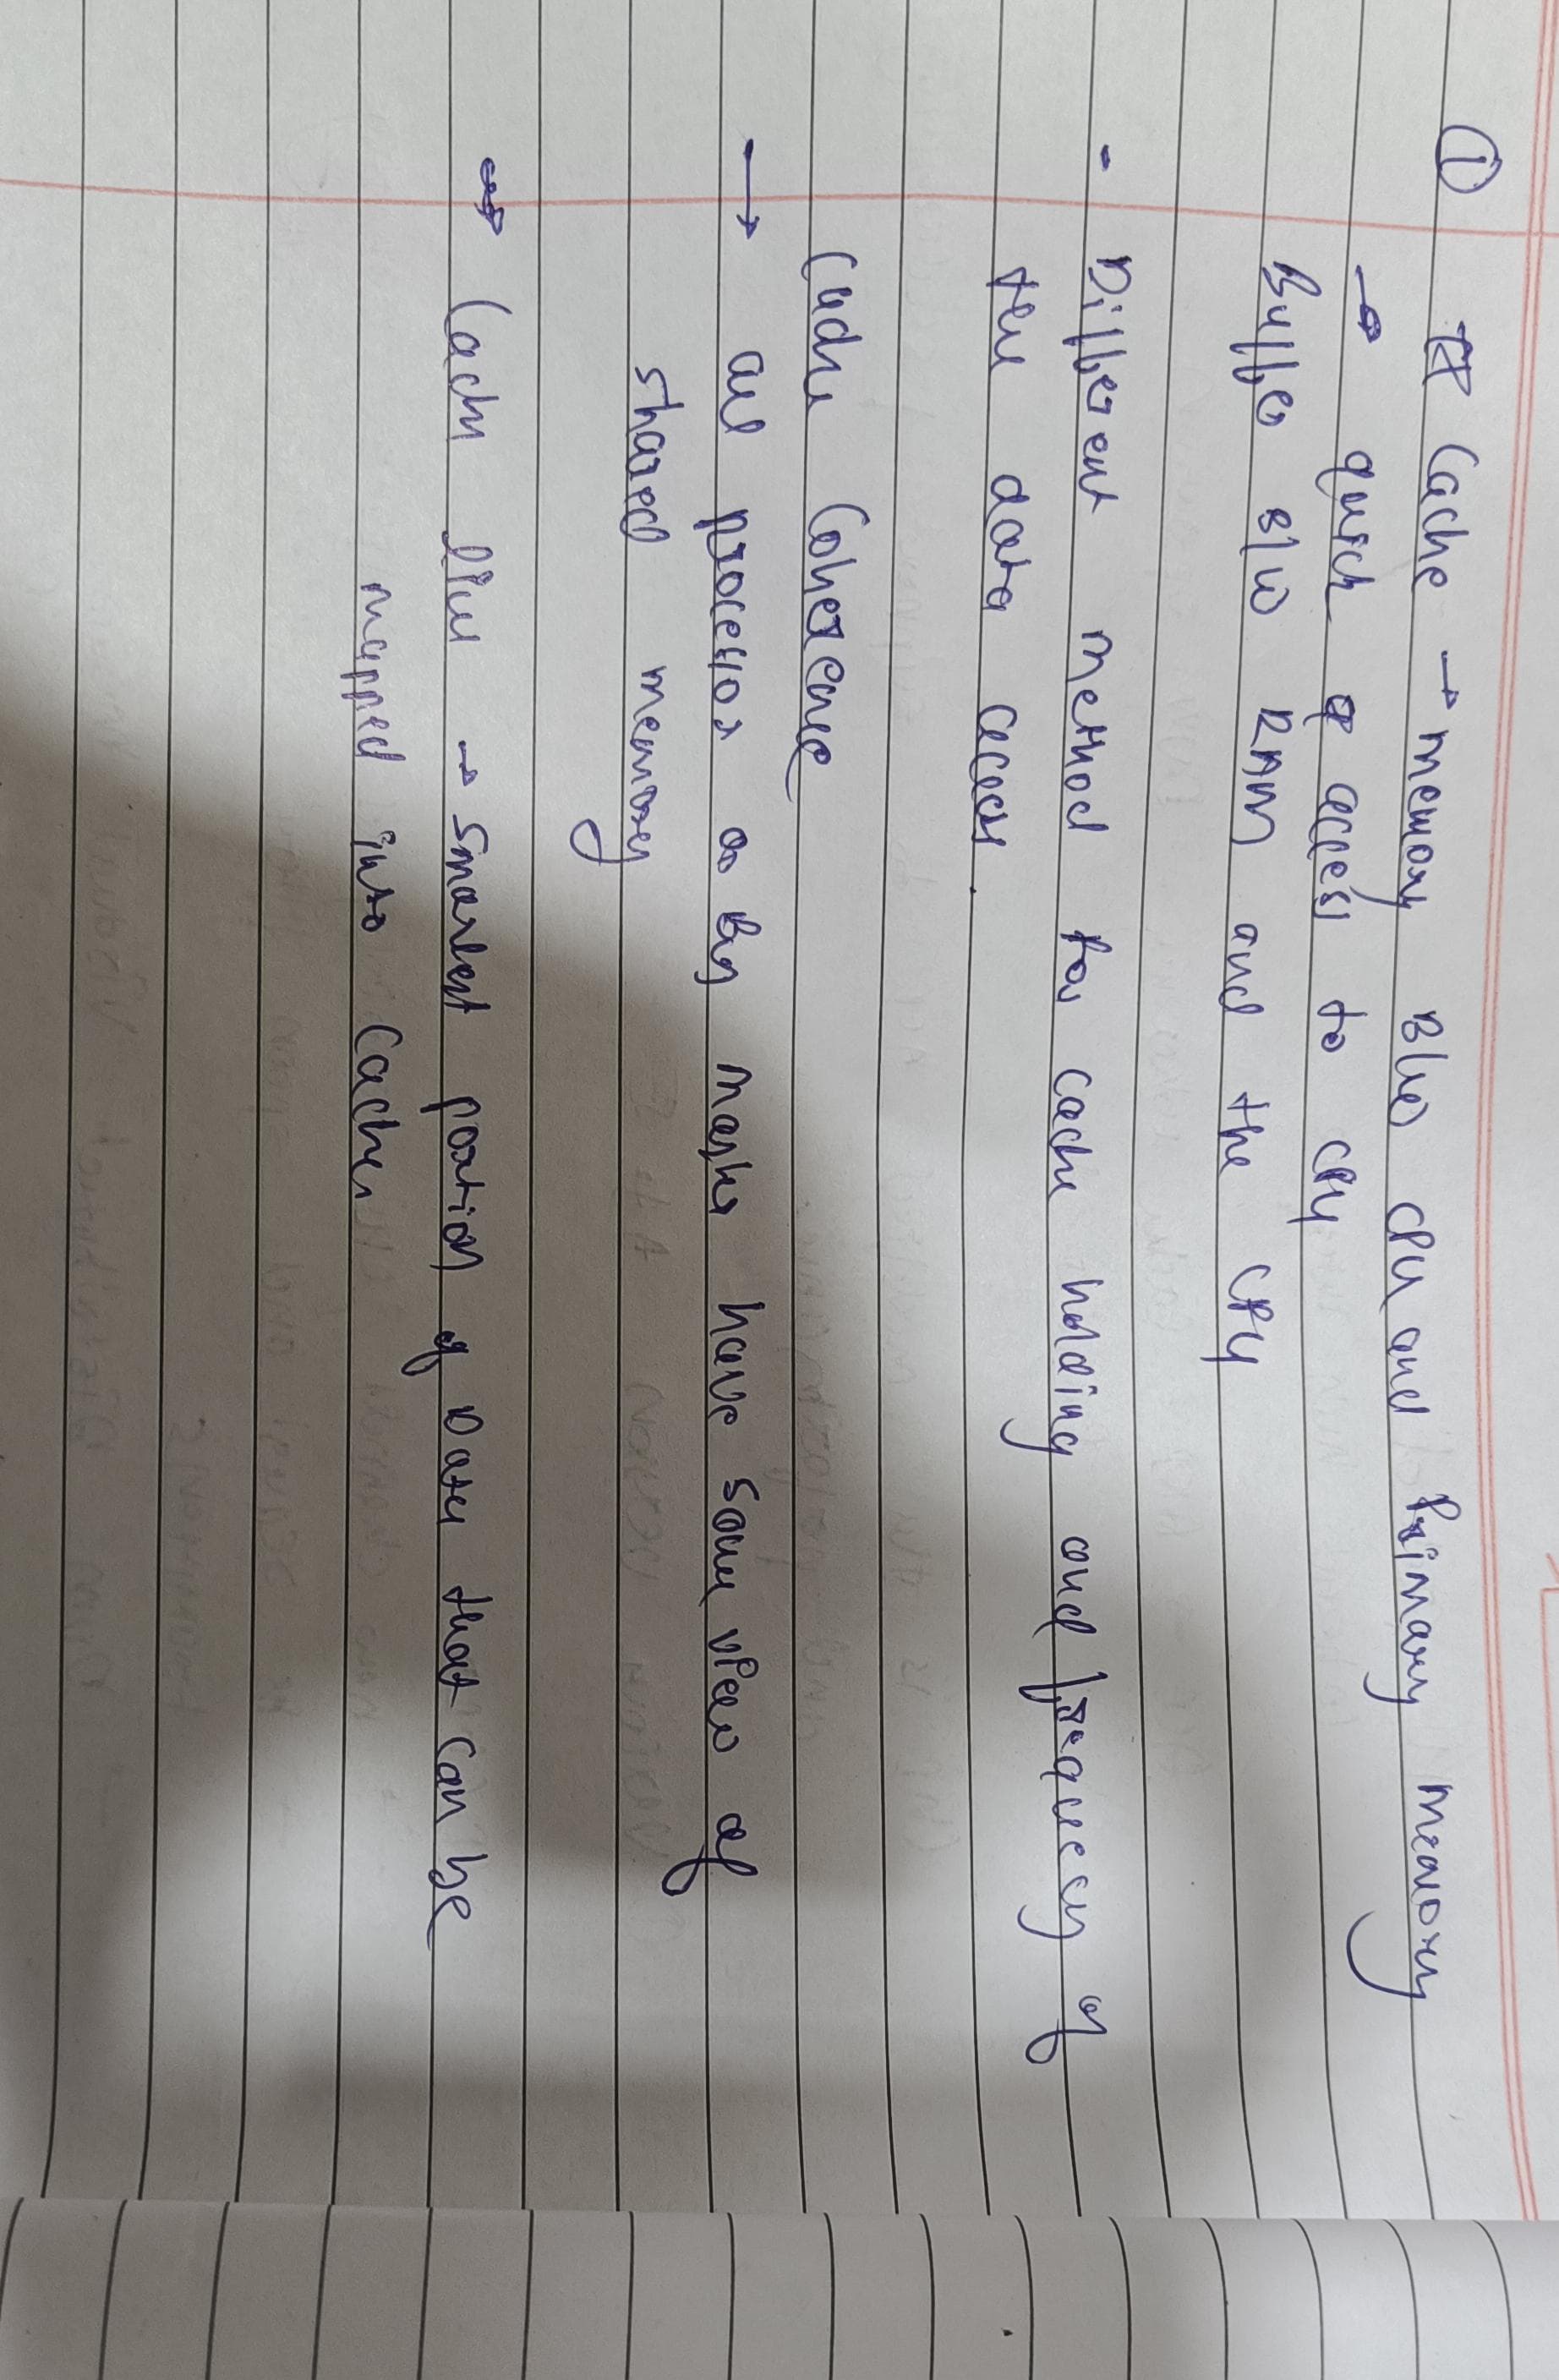 ① Cache → memory B/w CPU and Primary memory
→ quick access to CPU
Buffer B/w RAM and the CPU
- Different method for cache holding and frequecy of
the data acces.
Cache Coherence
→ all processor or Bus master have same view of
shared memory
→ Cache line → Smallest portion of Data that can be
mapped into Cache